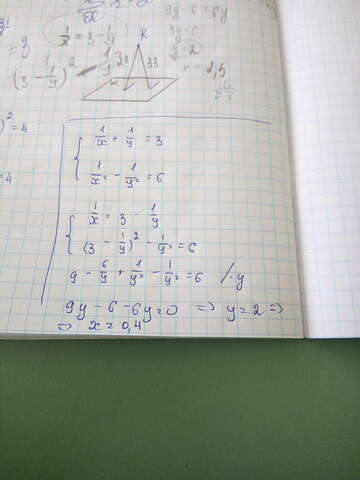 1/x = 3 - 1/y
K
9y - 6 = 6y
3y = 6
y = 2
33 33
2,5
(3 - 1/y)²
)² = 4
= 4
{ 1/x + 1/y = 3
1/x² - 1/y² = 6
{ 1/x = 3 - 1/y
(3 - 1/y)² - 1/y² = 6
9 - 6/y + 1/y² - 1/y² = 6 /·y
9y - 6 - 6y = 0 => y = 2 =>
=> x = 0,4